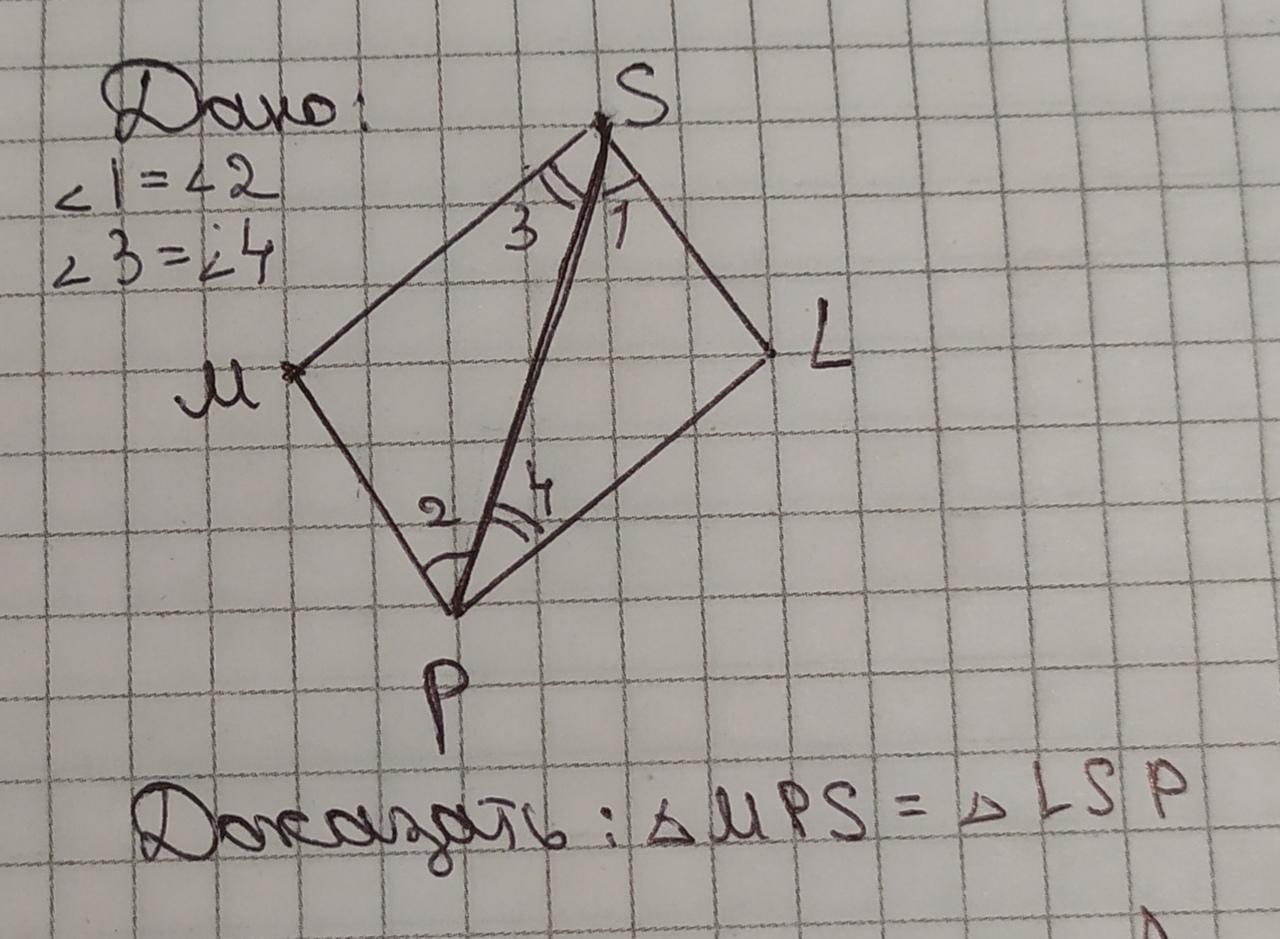 Дано:
∠1=∠2
∠3=∠4
S
3 1
M
L
2 4
P
Доказать: △MPS = △LSP